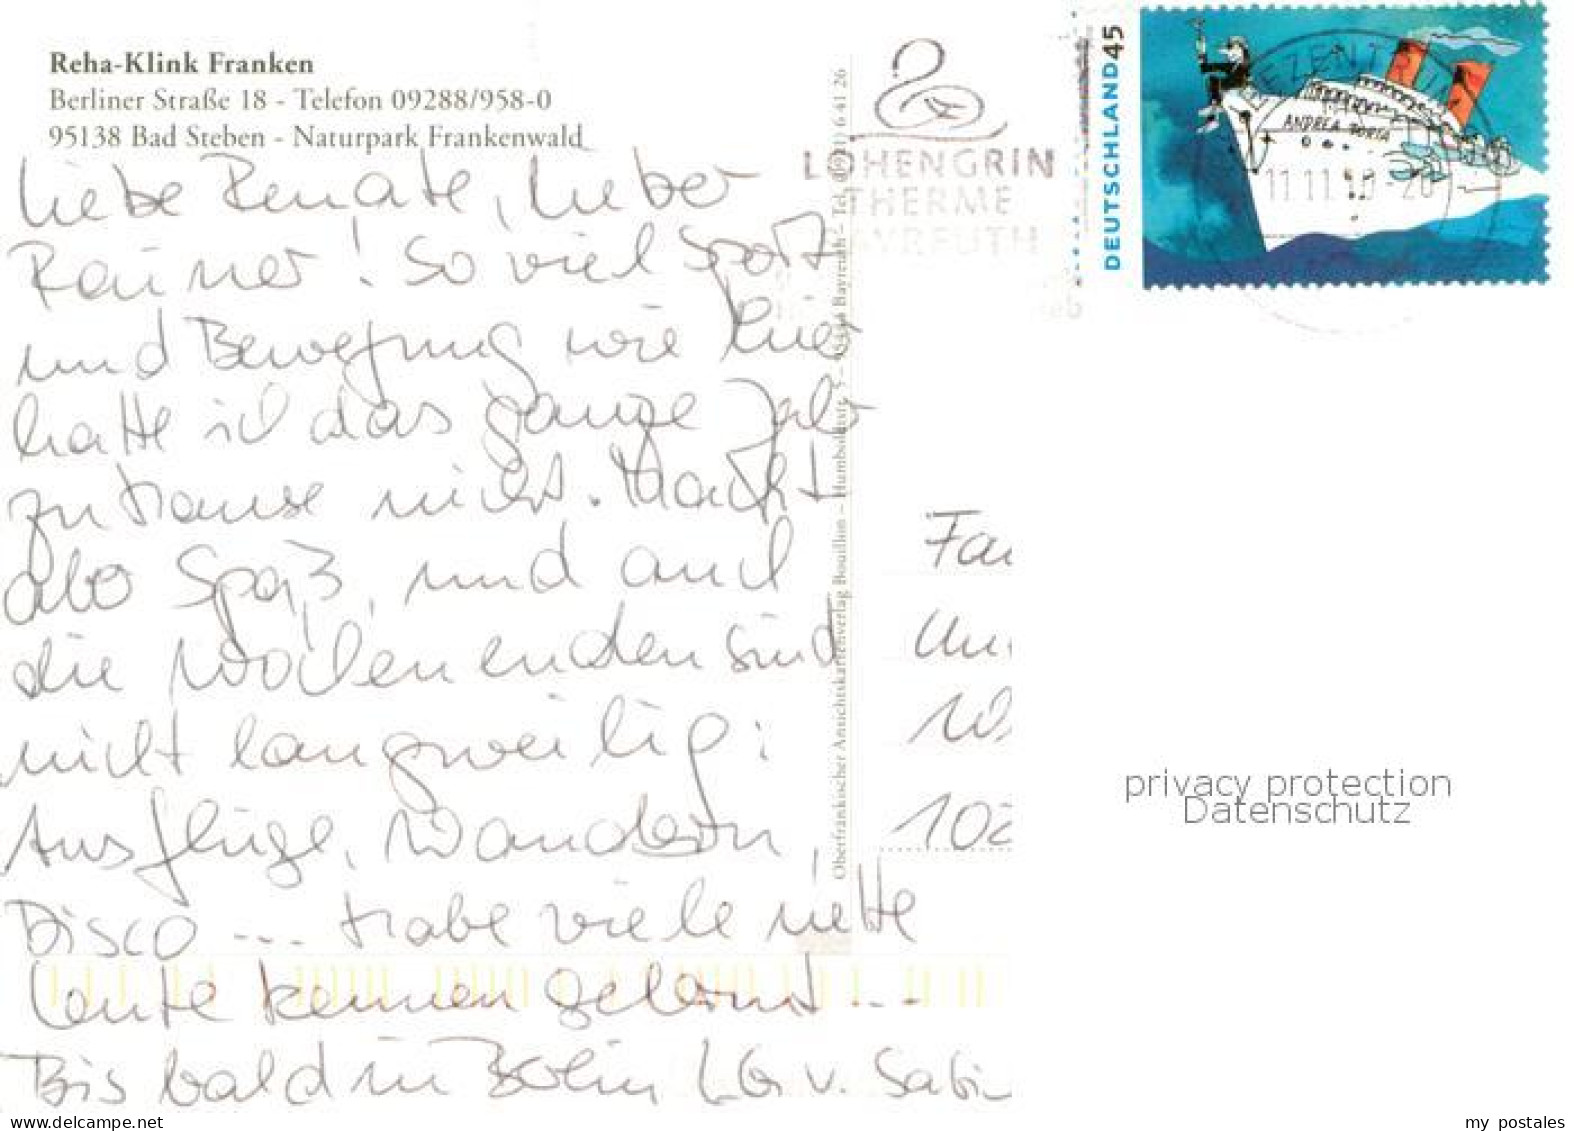 Reha-Klink Franken
Berliner Straße 18 - Telefon 09288/958-0
95138 Bad Steben - Naturpark Frankenwald
Liebe Renate, lieber
Rainer! So viel Sport
und Bewegung wie hier
hatte ich das ganze Jahr
zuhause nicht. Macht
aber Spaß, und auch
die Wochenenden sind
nicht langweilig:
Ausflüge, Wandern,
Disco ... habe viele nette
Leute kennen gelernt ...
Bis bald in Berlin LG v. Sabin
Oberfränkischer Ansichtskartenverlag Bouillon – Humboldtstr. 5 – Bayreuth – Tel. 6 41 26
LOHENGRIN
THERME
BAYREUTH
DEUTSCHLAND 45
ANDREA DORIA
BRIEFZENTRUM
11.11.
Fa
10
102
privacy protection
Datenschutz
www.delcampe.net
my postales